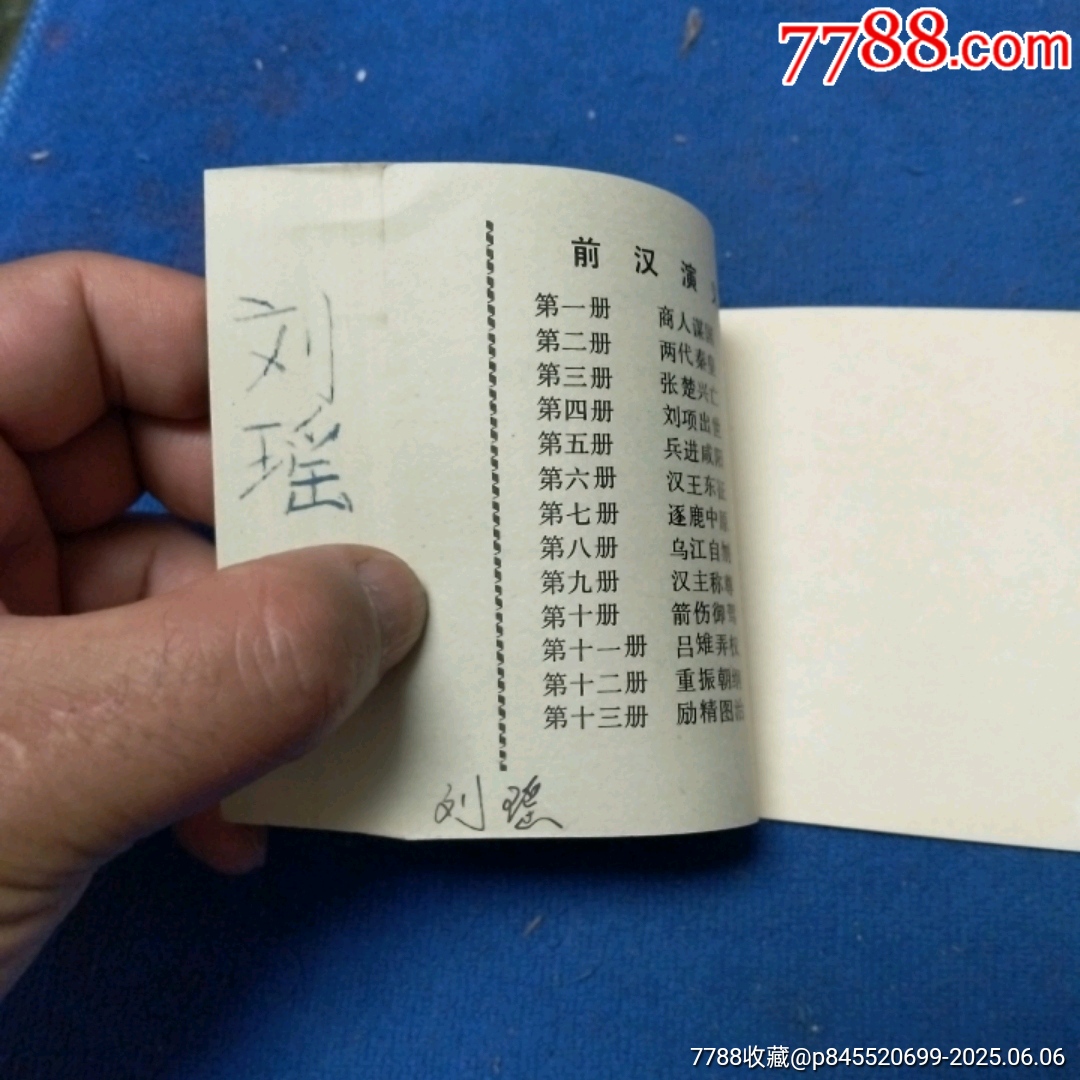 7788.com
刘
瑶
前汉演
第一册 商人谋国
第二册 两代秦皇
第三册 张楚兴亡
第四册 刘项出世
第五册 兵进咸阳
第六册 汉王东征
第七册 逐鹿中原
第八册 乌江自刎
第九册 汉主称尊
第十册 箭伤御驾
第十一册 吕雉弄权
第十二册 重振朝纲
第十三册 励精图治
刘瑶
7788收藏@p845520699-2025.06.06